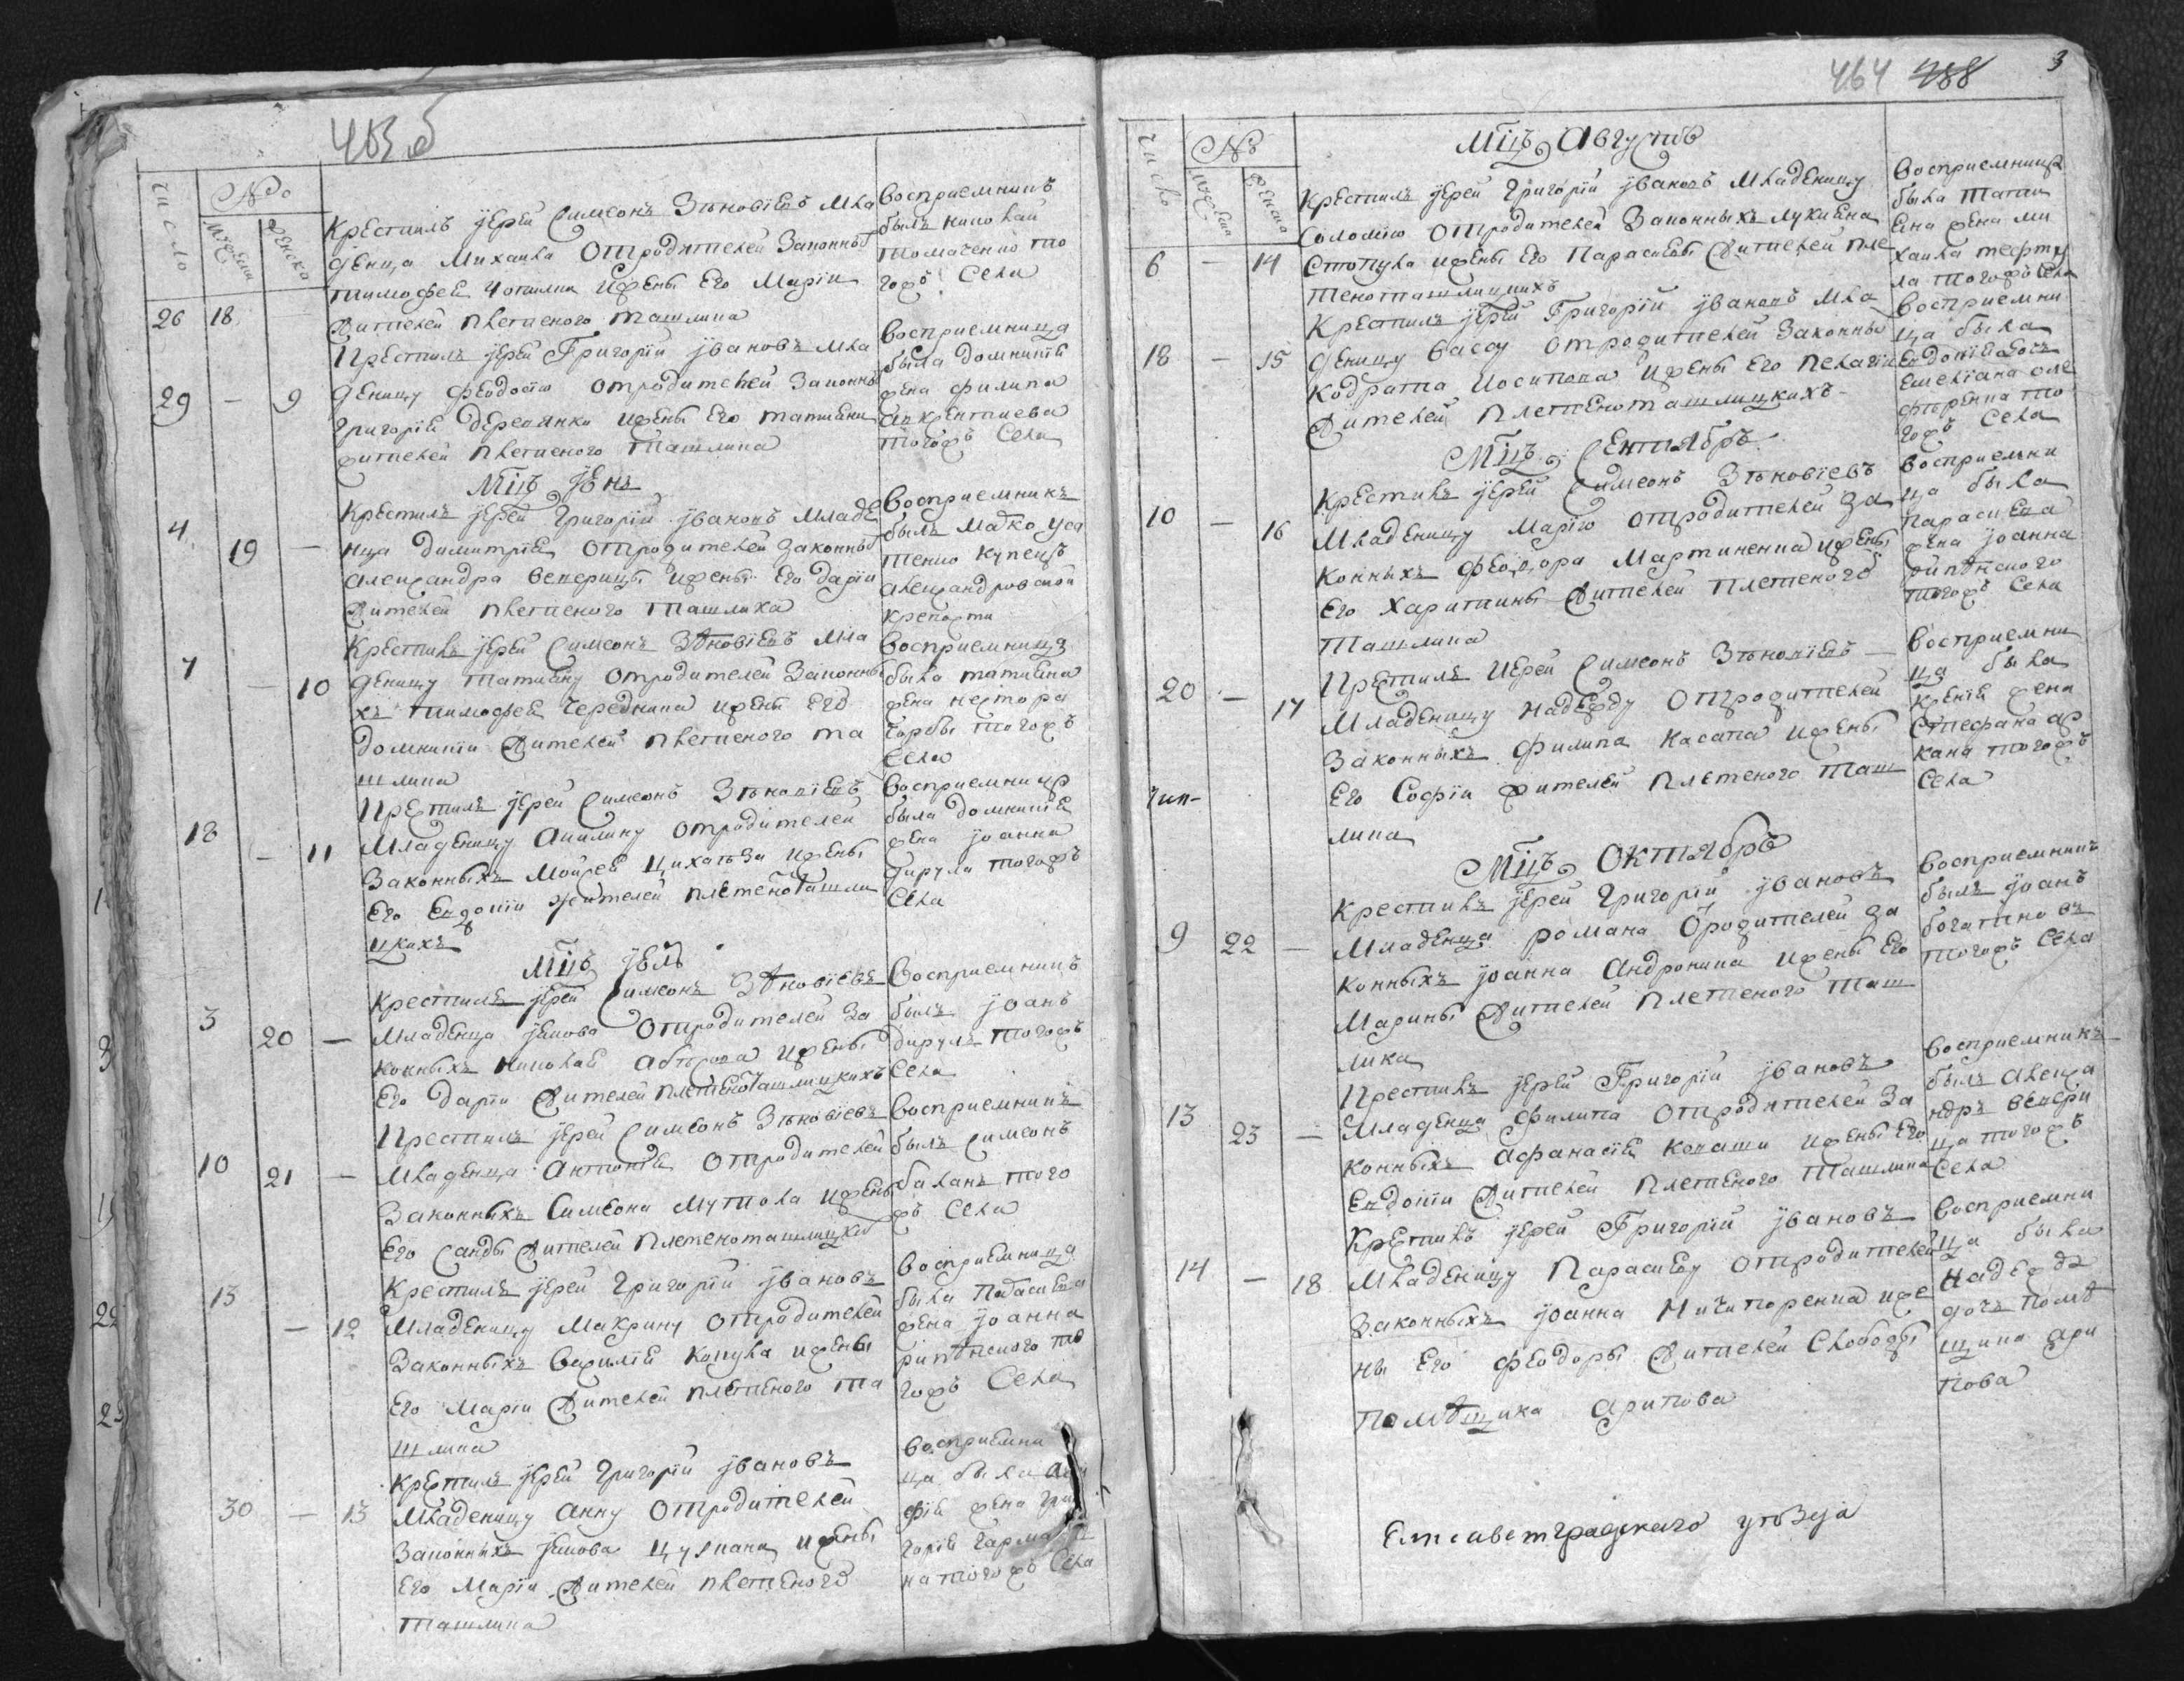 463 об
число
№
мужеска
женска
26 18
Крестилъ іерей Симеонъ Зѣновіевъ мла
денца Михаила отродителей законныхъ
Тимофея Чотилка ижены его Маріи
жителей плетеного ташлика
Восприемникъ
былъ николай
Томаченко то
гожъ села
29 - 9
Крестилъ іерей Григорій івановъ мла
деницу феодосію отродителей законныхъ
Григорія деревянко ижены его татияни
жителей плетеного ташлика
Восприемница
была домникія
жена филипа
Лаврентиева
тогожъ села
Мцъ іюнь
4 19 -
Крестилъ іерей Григорій івановъ младе
нца димитрія отродителей законныхъ
александра веверицы ижены его даріи
жителей плетеного ташлика
Восприемникъ
былъ Марко уса
тенко купецъ
александровской
крепости
7 - 10
Крестилъ іерей Симеонъ Зѣновіевъ мла
деницу татиану отродителей законны
хъ тимофея Чередника ижены его
домникіи жителей плетеного та
шлика
Восприемница
была татияна
жена нестора
сорбы тогожъ
села
18 - 11
Крестилъ іерей Симеонъ Зѣновіевъ
младеницу акилину отродителей
законныхъ Мойсея Цихаѣза ижены
его евдокіи жителей плетеноташли
цкихъ
Восприемница
была домникія
жена іоанна
дирула тогожъ
села
Мцъ іюль
3 20 -
Крестилъ іерей Симеонъ Зѣновіевъ
младенца іякова отродителей за
конныхъ николая аброва ижены
его даріи жителей плетеноташлицкихъ
Восприемникъ
былъ іоанъ
дирулъ тогожъ
села
10 21 -
Крестилъ іерей Симеонъ Зѣновіевъ
младенца антонія отродителей
законныхъ Симеона мутпола ижены
его санды жителей плетеноташлицкихъ
Восприемникъ
былъ симеонъ
баланъ того
жъ села
13 - 12
Крестилъ іерей Григорій івановъ
младеницу Макрину отродителей
законныхъ василія копула ижены
его Маріи жителей плетеного та
шлика
Восприемница
была Параскева
жена іоанна
рипѣнского то
гожъ села
30 - 13
Крестилъ іерей Григорій івановъ
младеницу анну отродителей
законныхъ іякова Цулкана ижены
его Маріи жителей плетеного
ташлика
Восприемни
ца была
фія жена гри
горія гарма
на тогожъ села
464 488 3
число
№
мужеска
женска
Мцъ Августъ
6 - 14
Крестилъ іерей Григорій івановъ младеницу
Соломію отродителей законныхъ лукияна
стопула ижены его Параскевы жителей пле
теноташлицкихъ
Восприемница
была татия
яна жена ми
хаила тефту
ла тогожъ села
18 - 15
Крестилъ іерей Григорій івановъ мла
деницу вассу отродителей законны
Кодрата иосипова ижены его пелагіи
жителей плетеноташлицкихъ
Восприемни
ца была
евдокія дочь
емеліана оле
фиренка то
гожъ села
Мцъ Сентябръ
10 - 16
Крестилъ іерей Симеонъ Зѣновіевъ
младеницу Марію отродителей за
конныхъ феодора Мартиненка ижены
его харитины жителей плетеного
Ташлика
Восприемни
ца была
параскева
жена іоанна
рипѣнского
тогожъ села
20 - 17
Крестилъ иерей Симеонъ Зѣновіевъ
младеницу надежду отродителей
законныхъ филипа касапа ижены
его софіи жителей плетеного таш
лика
Восприемни
ца была
ксенія жена
стефана ар
кана тогожъ
села
Мцъ Октябръ
9 22 -
Крестилъ іерей Григорій івановъ
младенца романа отродителей за
конныхъ іоанна Андроника ижены его
Марины жителей плетеного таш
лика
Восприемникъ
былъ іоанъ
богатиновъ
тогожъ села
13 23 -
Крестилъ іерей Григорій івановъ
младенца филипа отродителей за
конныхъ афанасія коваши ижены его
евдокіи жителей плетеного ташлика
Восприемникъ
былъ алекса
ндръ вевери
ца тогожъ
села
14 - 18
Крестилъ іерей Григорій івановъ
младеницу Параскеву отродителей
законныхъ іоанна Ничипоренка иже
ны его феодоры жителей слободы
помѣщика арипова
Восприемни
ца была
надежда
дочь помѣ
щика ари
пова
Елисаветградскаго уѣзда